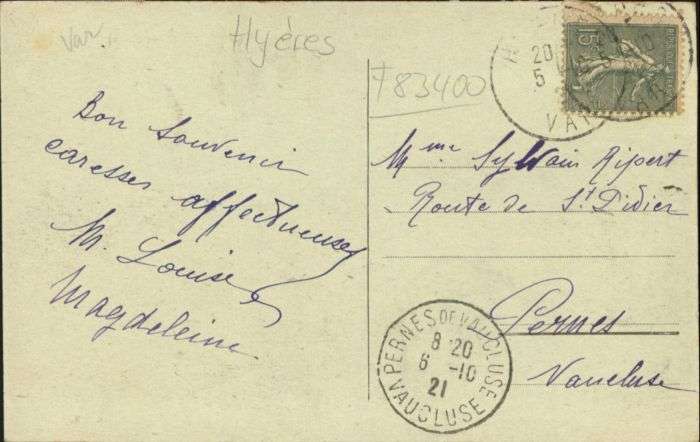 Var.
Hyères
83400
15
20
5
VAR
Bon souvenir
caresses affectueuses
M. Louise
Magdeleine
Mme Sylvain Ripert
Route de St Didier
Pernes
Vaucluse
PERNES DE VAUCLUSE
8 20
6 -10
21
VAUCLUSE